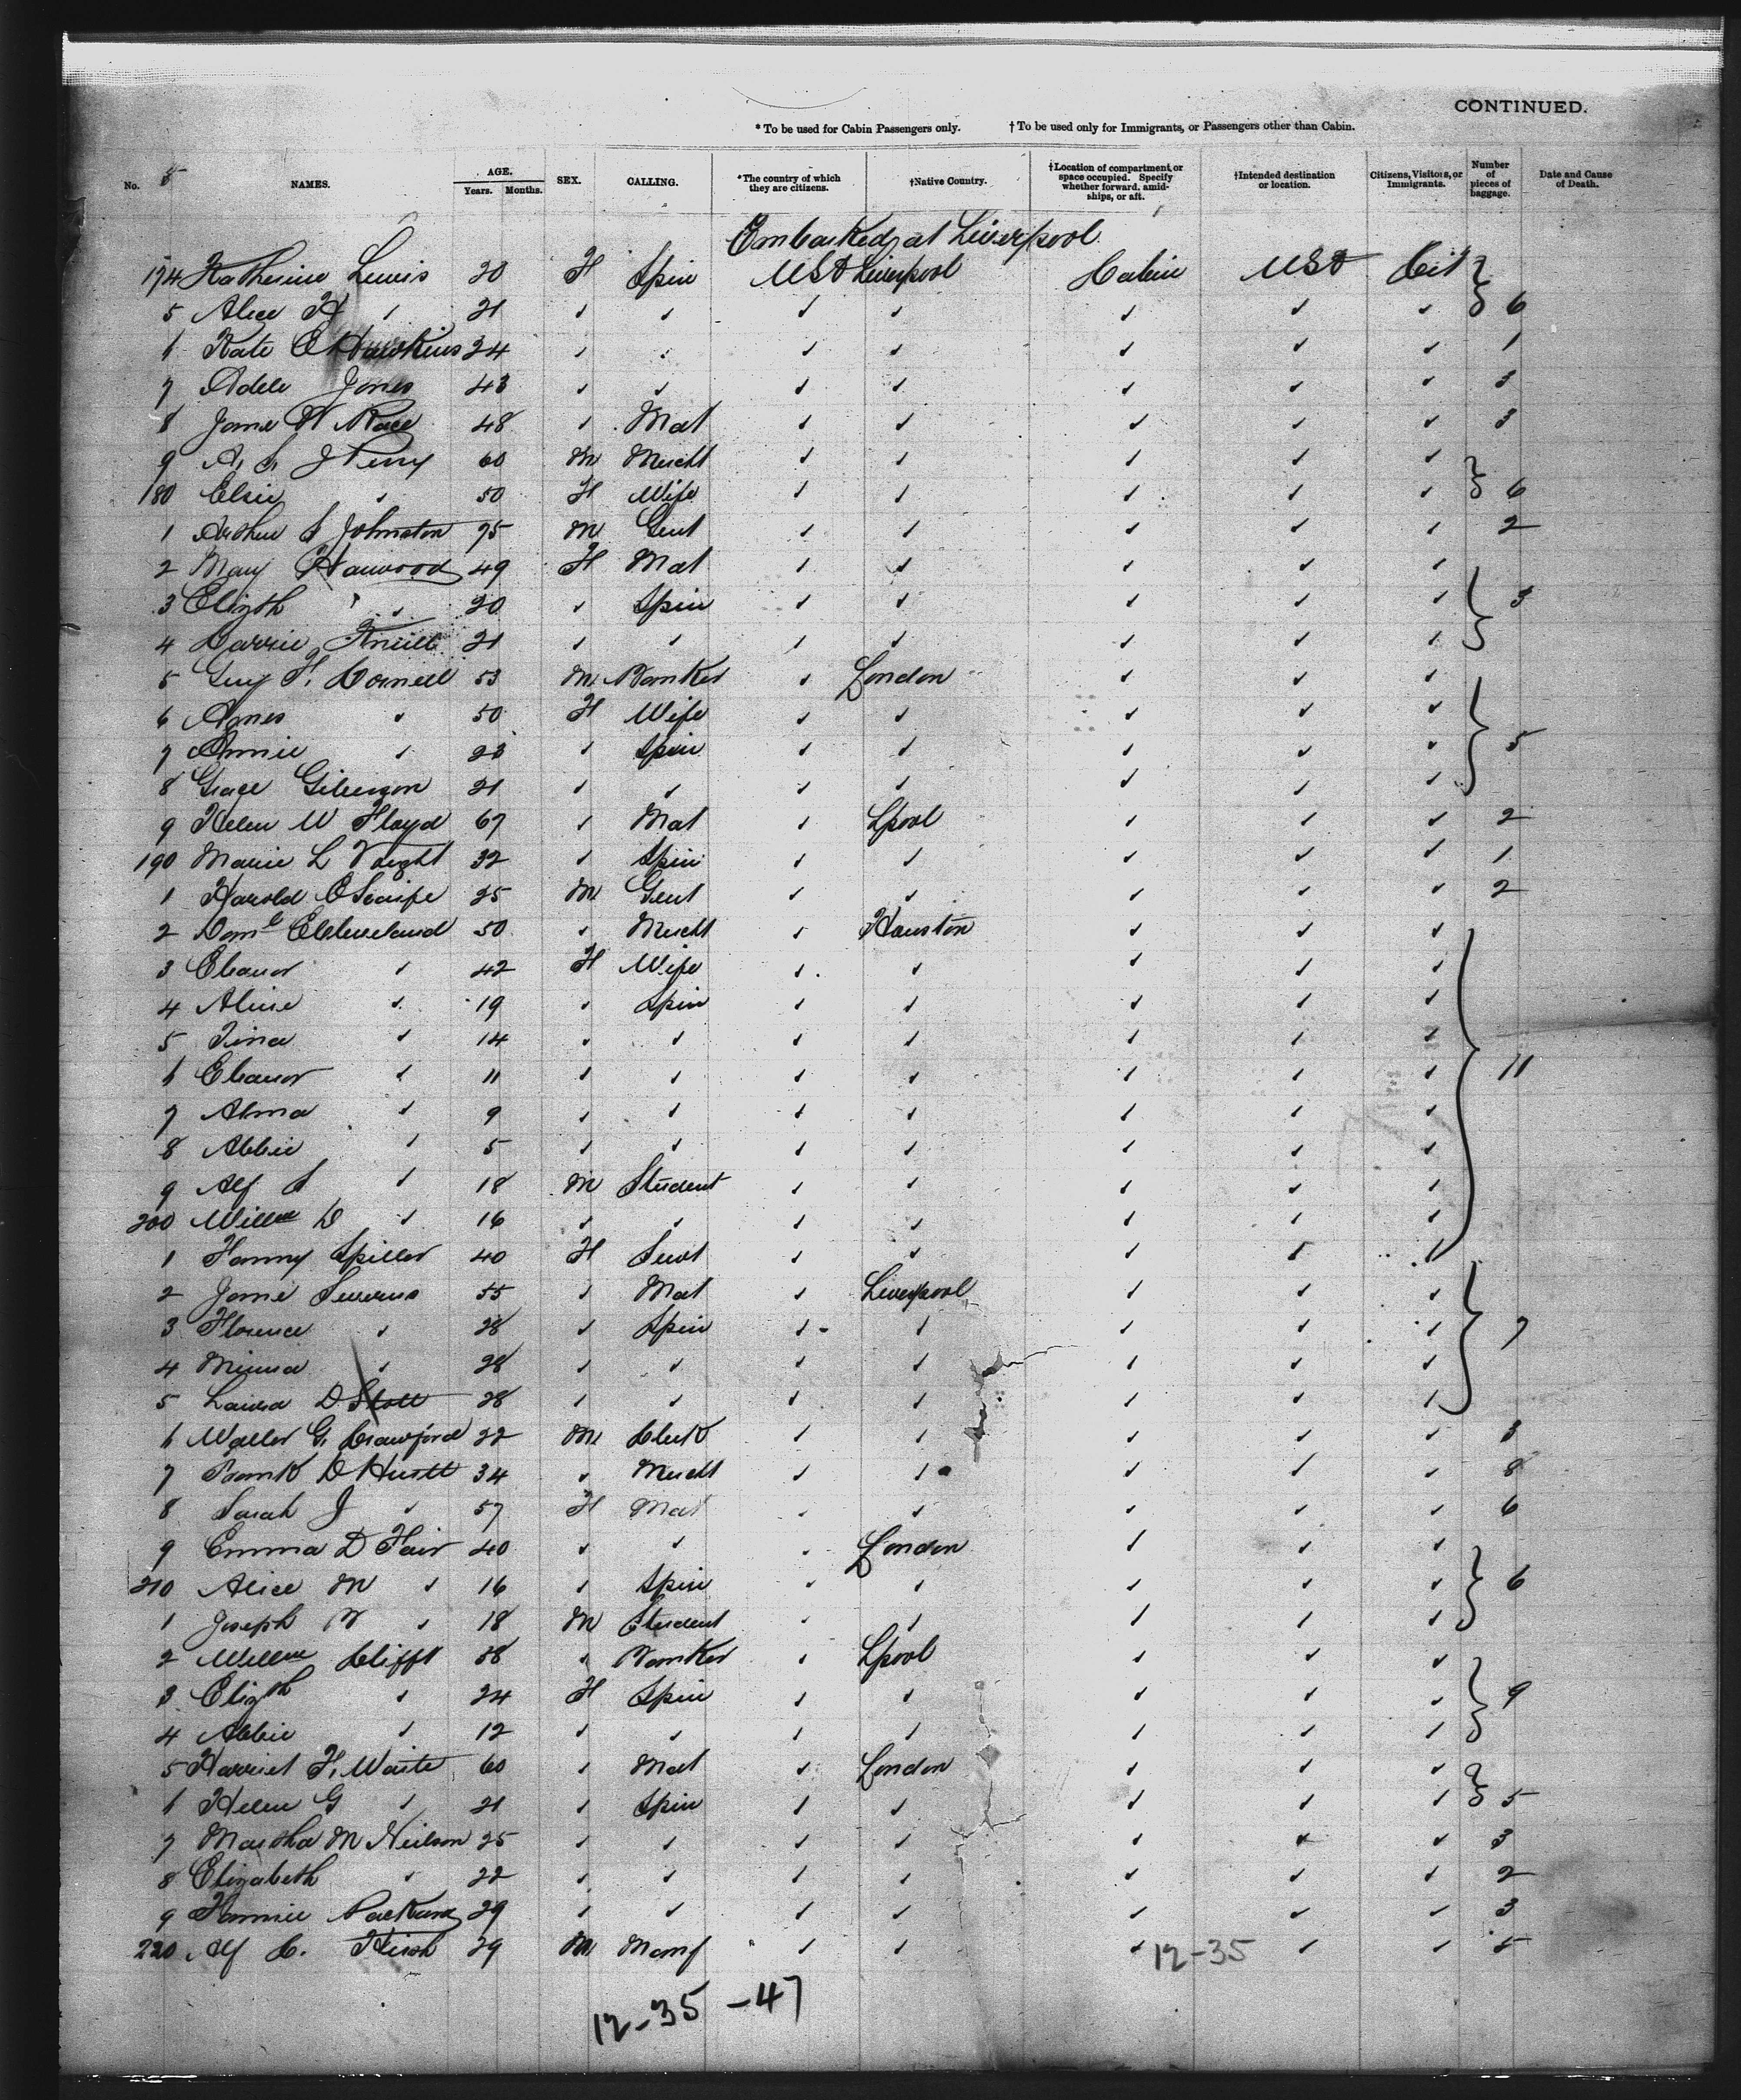 CONTINUED.
* To be used for Cabin Passengers only. † To be used only for Immigrants, or Passengers other than Cabin.
No. 5 NAMES. AGE. Years. Months. SEX. CALLING. *The country of which they are citizens. †Native Country. †Location of compartment or space occupied. Specify whether forward, amidships, or aft. †Intended destination or location. Citizens, Visitors, or Immigrants. Number of pieces of baggage. Date and Cause of Death.
Embarked at Liverpool
174 Katherine Lewis 20 F Spin USA Liverpool Cabin USA Cit
5 Alice H " 21 6
6 Kate E Hawkins 24 1
7 Adele Jones 43 3
8 Jane W Race 48 Mat 3
9 A. S. J Perry 60 M Mercht
180 Elsie " 50 F Wife 6
1 Arthur S Johnston 75 M Gent 2
2 Mary Harwood 49 F Mat
3 Elizth " 20 Spin 3
4 Carrie 21
5 Guy F. Cornell 53 M Banker London
6 Agnes " 50 F Wife
7 Annie " 23 Spin 5
8 Grace 21
9 Helen W Floyd 67 Mat Lpool 2
190 Marie L Voight 32 Spin 1
1 Harold E Scaife 25 M Gent 2
2 Danl E Cleveland 50 Mercht Houston
3 Eleanor " 42 F Wife
4 Aline " 19 Spin
5 Tina " 14
6 Eleanor " 11 11
7 Alma " 9
8 Abbie " 5
9 Alf S " 18 M Student
200 Willm D " 16
1 Fanny Spiller 40 F Servt
2 Jane Severns 55 Mat Liverpool
3 Florence " 28 Spin 7
4 Minna " 28
5 Laura D Stott 28
6 Walter G. Crawford 22 M Clerk 3
7 Frank D 34 Mercht 8
8 Sarah J " 57 F Mat 6
9 Emma D Fair 40 London
210 Alice M " 16 Spin 6
1 Joseph W " 18 M Student
2 Willm Clifft 58 Banker Lpool
3 Elizth " 24 F Spin 9
4 Abbie " 12
5 Harriet F. Waite 60 Mat London
6 Helen G " 21 Spin 5
7 Martha M Neilson 25 3
8 Elizabeth " 22 2
9 Fannie Packard 29 3
220 Alf C. Hirsh 29 M Manf 5
12-35
12-35-47